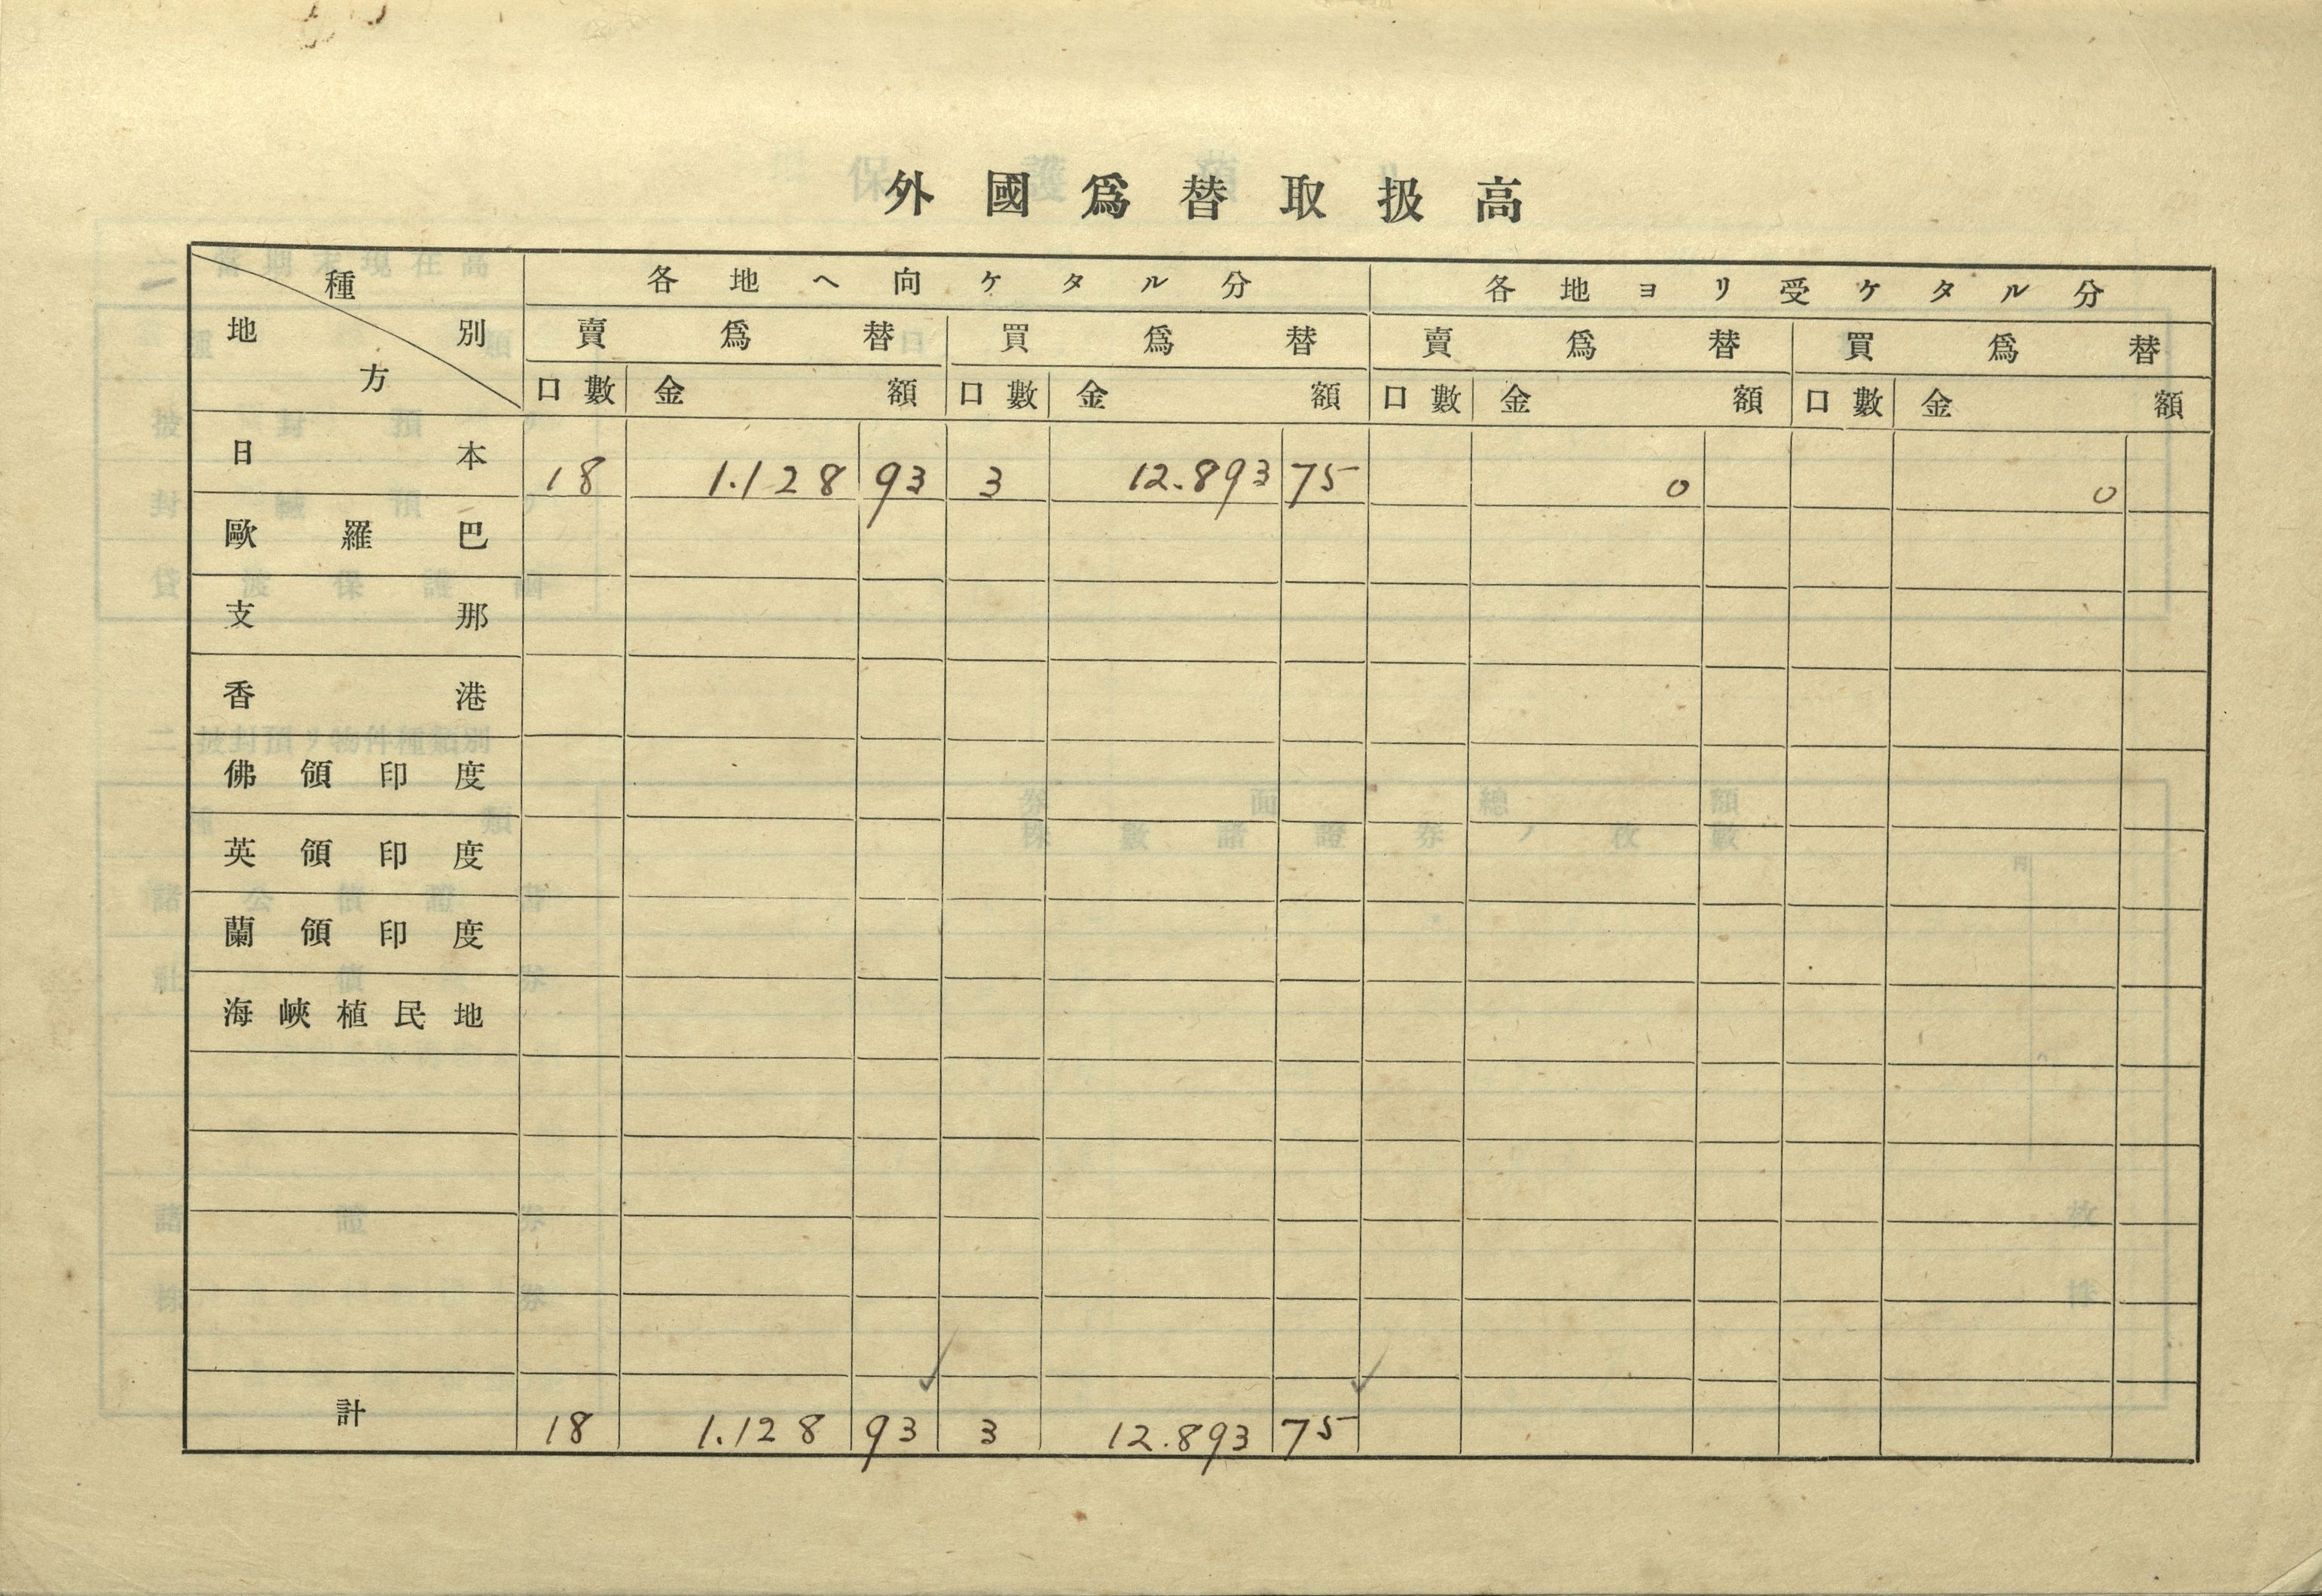 外國爲替取扱高
種別 地方 各地ヘ向ケタル分 各地ヨリ受ケタル分
賣爲替 買爲替 賣爲替 買爲替
口數 金額 口數 金額 口數 金額 口數 金額
日本 18 1.128 93 3 12.893 75 0 0
歐羅巴
支那
香港
佛領印度
英領印度
蘭領印度
海峽植民地
計 18 1.128 93 3 12.893 75